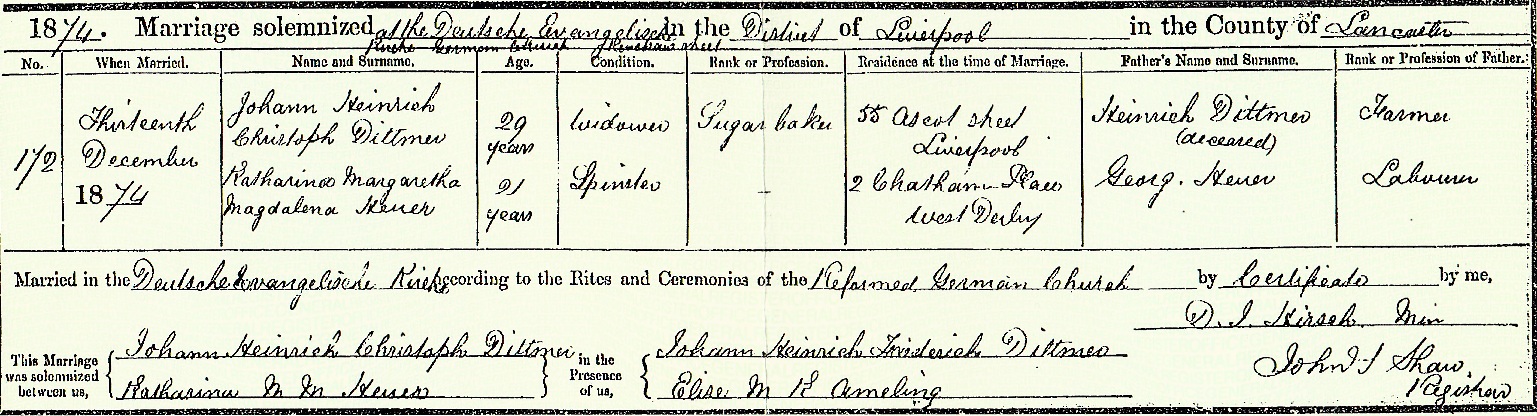 1874. Marriage solemnized at the Deutsche Evangelische in the District of Liverpool in the County of Lancaster
Kirche German Church Renshaw street
No. When Married. Name and Surname. Age. Condition. Rank or Profession. Residence at the time of Marriage. Father's Name and Surname. Rank or Profession of Father.
172
Thirteenth
December
1874
Johann Heinrich
Christoph Dittmer
29
years
Widower
Sugar baker
55 Ascot street
Liverpool
Heinrich Dittmer
(deceased)
Farmer
Katharina Margaretha
Magdalena Heuer
21
years
Spinster
—
2 Chatham Place
West Derby
Georg. Heuer
Labourer
Married in the Deutsche Evangelische Kirche according to the Rites and Ceremonies of the Reformed German Church by Certificate by me,
D. J. Hirsch. Min
This Marriage
was solemnized
between us,
Johann Heinrich Christoph Dittmer
Katharina M M Heuer
in the
Presence
of us,
Johann Heinrich Friederich Dittmer
Elise M K Ameling
John S Shaw.
Registrar